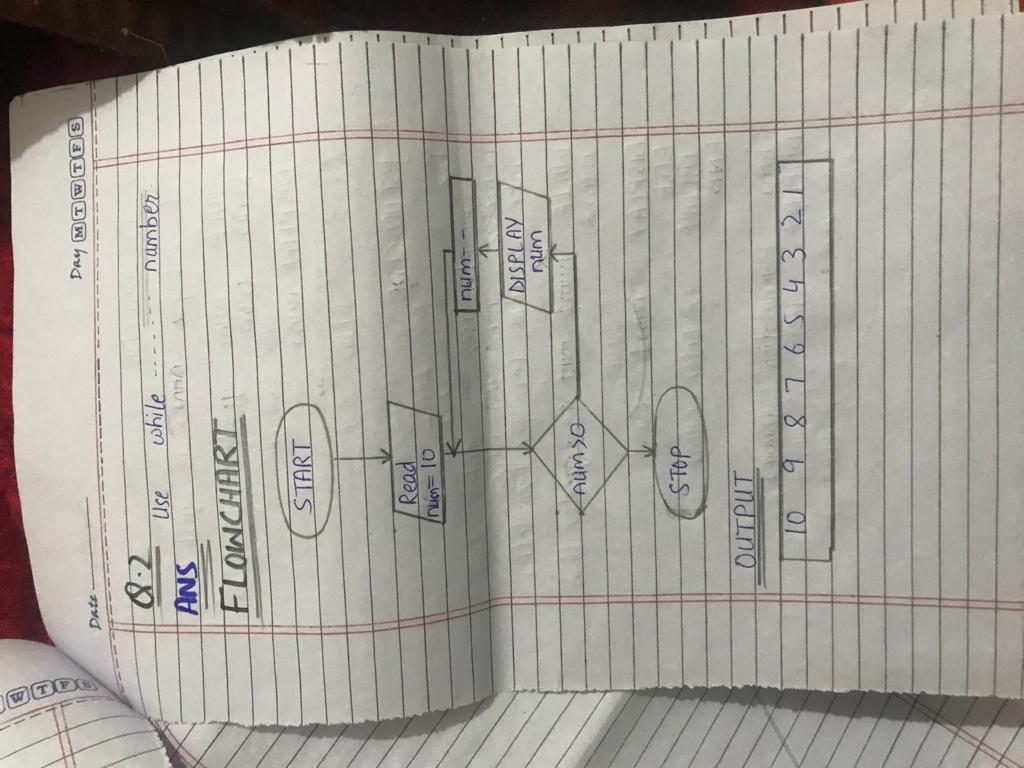 Date
Day M T W T F S
Q.2 Use while ..... number
ANS
FLOWCHART
START
Read
num=10
num>0
DISPLAY
num
num--
STOP
OUTPUT
10 9 8 7 6 5 4 3 2 1
W T F S